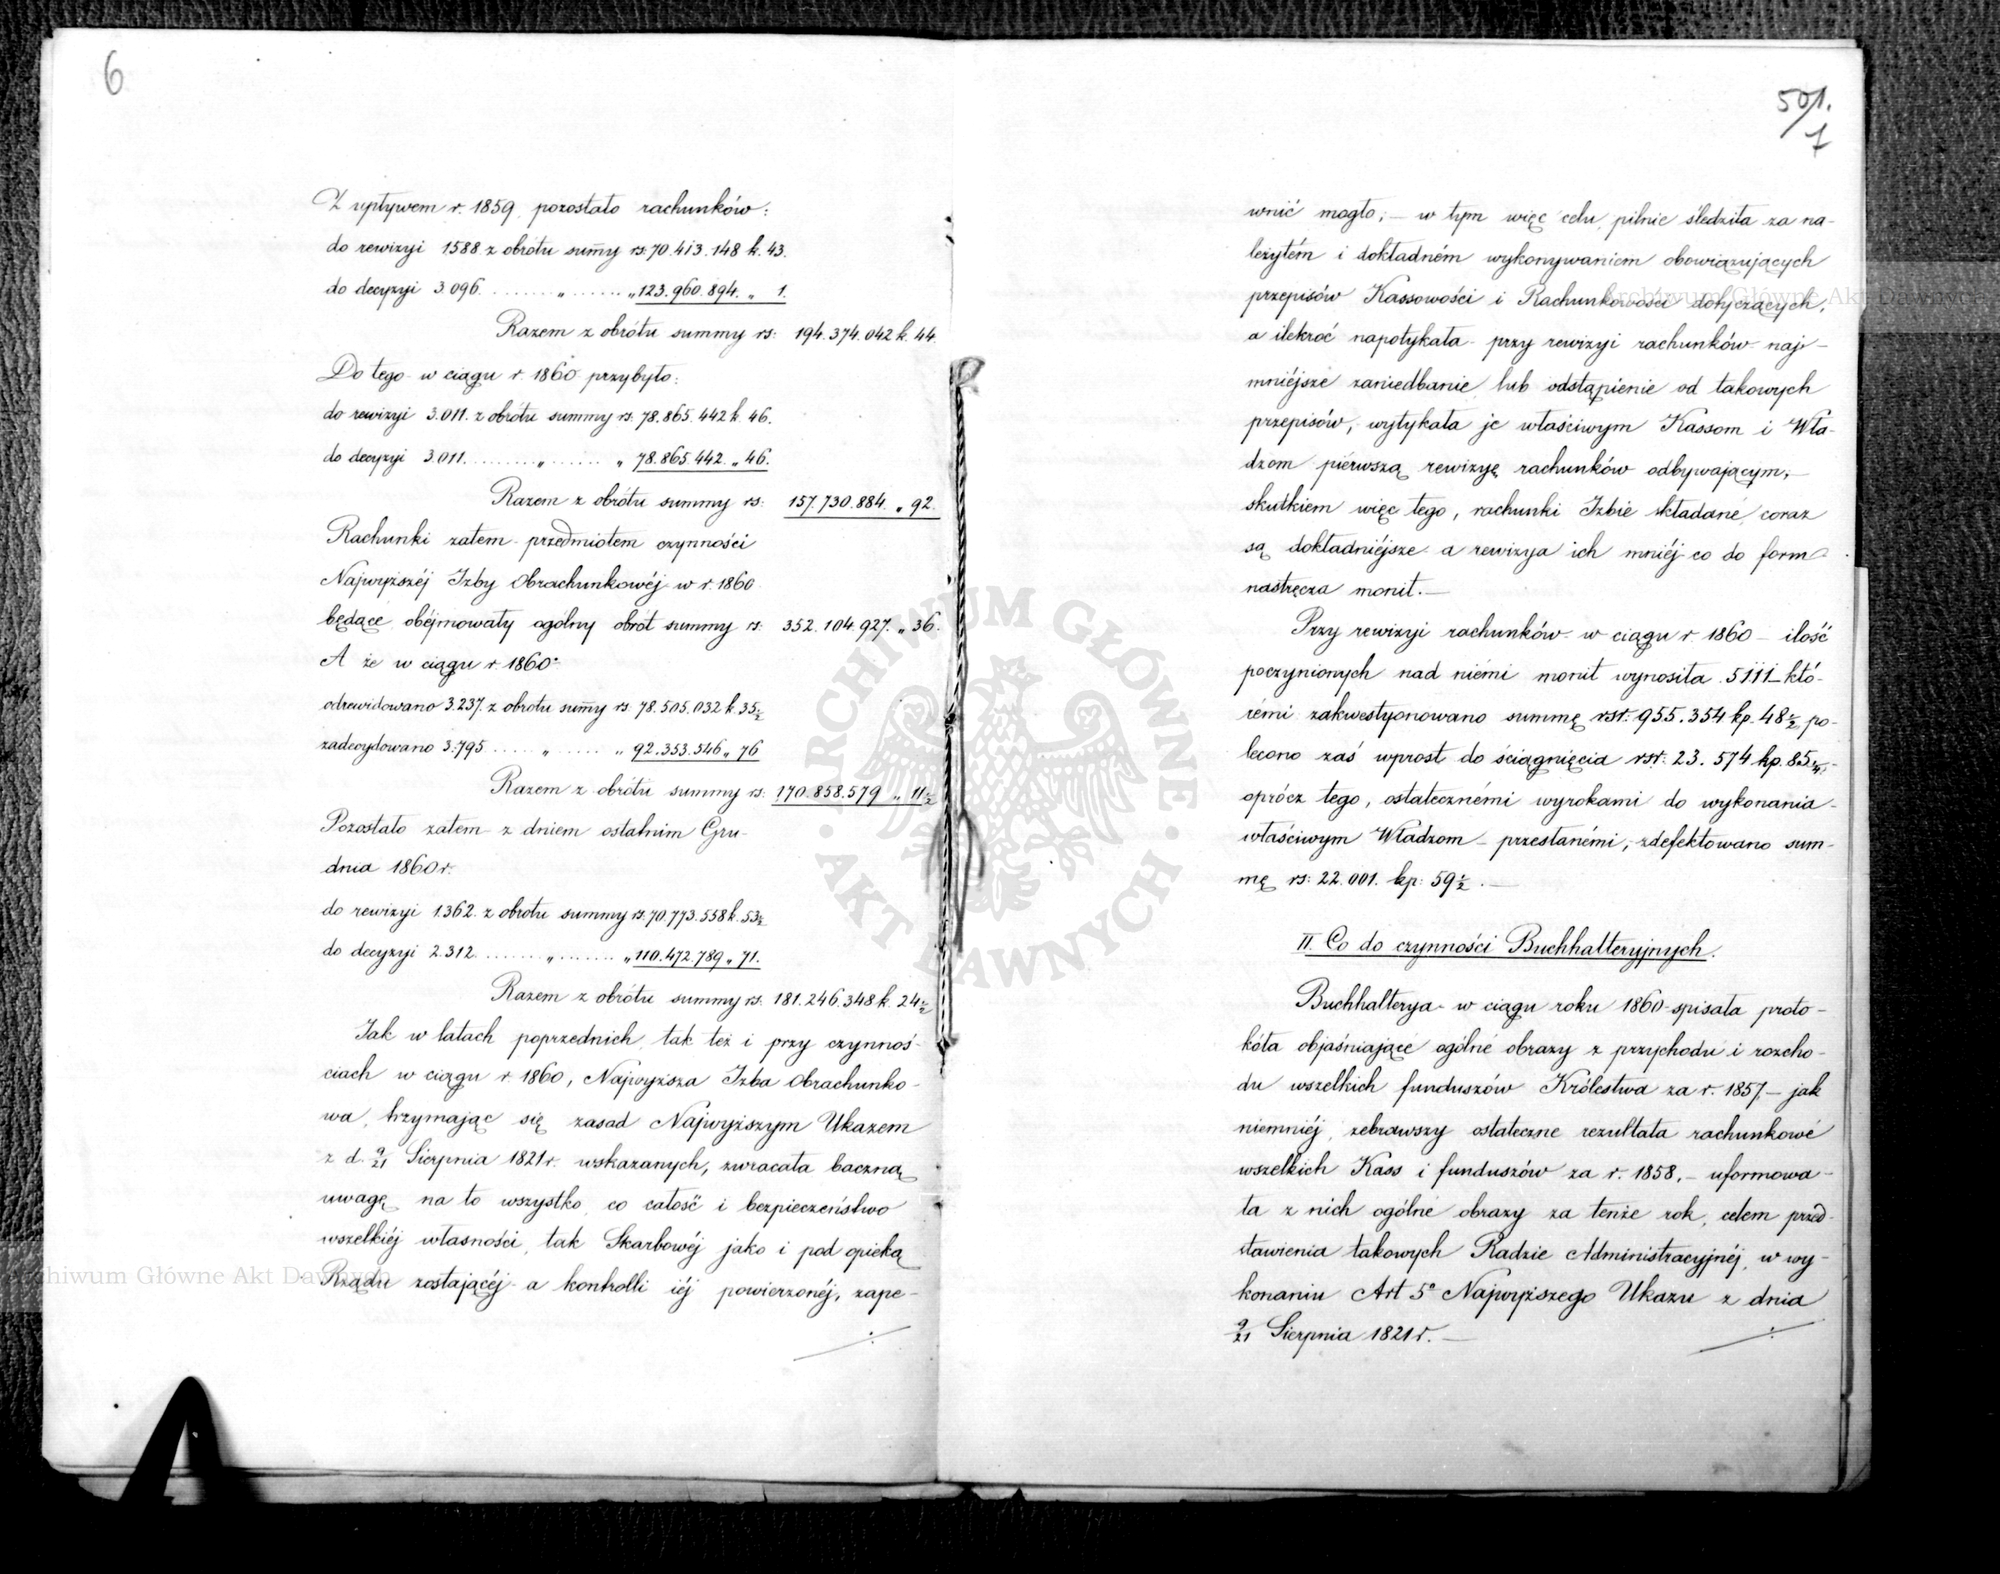 6
Z upływem r. 1859 pozostało rachunków:
do rewizyi 1588 z obrótu sum̄y rs: 70.413.148 k. 43.
do decyzyi 3.096. ........ „ ...... „ 123.960.894. „ 1.
Razem z obrótu summy rs: 194.374.042 k. 44.
Do tego w ciągu r. 1860 przybyło:
do rewizyi 3.011. z obrótu summy rs. 78.865.442 k. 46.
do decyzyi 3.011. ........ „ ...... „ 78.865.442. „ 46.
Razem z obrótu summy rs: 157.730.884. „ 92.
Rachunki zatem przedmiotem czynności
Najwyższéj Izby Obrachunkowéj w r. 1860
będące, obéjmowały ogólny obrót summy rs: 352.104.927. „ 36.
A że w ciągu r. 1860
odrewidowano 3.237. z obrotu sum̄y rs. 78.505.032 k. 35½
zadecydowano 3.795 ..... „ ..... „ 92.353.546 „ 76
Razem z obrótu summy rs: 170.858.579 „ 11½
Pozostało zatem z dniem ostatnim Gru-
dnia 1860 r.
do rewizyi 1.362. z obrótu summy rs. 70.773.558 k. 53½
do decyzyi 2.312. ........ „ ....... „ 110.472.789 „ 71.
Razem z obrótu summy rs. 181.246.348 k. 24½
Jak w latach poprzednich, tak też i przy czynnoś-
ciach w ciągu r. 1860, Najwyższa Izba Obrachunko-
wa, trzymając się zasad Najwyższym Ukazem
z d. 9/21 Sierpnia 1821 r. wskazanych, zwracała baczną
uwagę na to wszystko, co całość i bezpieczeństwo
wszelkiéj własności, tak Skarbowéj jako i pod opieką
Rządu zostającéj a kontrolli iéj powierzonéj, zape-
501.
7
wnić mogło; – w tym więc celu, pilnie śledziła za na-
leżytém i dokładném wykonywaniem obowiązujących
przepisów Kassowości i Rachunkowości dotyczących,
a ilekroć napotykała przy rewizyi rachunków naj-
mniéjsze zaniedbanie lub odstąpienie od takowych
przepisów, wytykała je właściwym Kassom i Wła-
dzom pierwszą rewizyę rachunków odbywającym; –
skutkiem więc tego, rachunki Izbie składane, coraz
są dokładniéjsze a rewizya ich mniéj co do form
nastręcza monit. –
Przy rewizyi rachunków w ciągu r. 1860 – ilość
poczynionych nad niémi monit wynosiła 5111 – któ-
rémi zakwestyonowano summę rsr: 955.354 kp. 48½ po-
lecono zaś wprost do ściągnięcia rsr: 23.574 kp. 85¼; –
oprócz tego, ostatecznémi wyrokami do wykonania
właściwym Władzom – przesłanémi, zdefektowano sum-
mę rs: 22.001. kp: 59½. –
II. Co do czynności Buchhalteryjnych.
Buchhalterya w ciągu roku 1860 spisała proto-
kóła objaśniające ogólne obrazy z przychodu i rozcho-
du wszelkich funduszów Królestwa za r. 1857. – jak
niemniéj, zebrawszy ostateczne rezultata rachunkowe
wszelkich Kass i funduszów za r. 1858. – uformowa-
ła z nich ogólne obrazy za tenże rok, celem przed-
stawienia takowych Radzie Administracyjnéj, w wy-
konaniu Art 5º Najwyższego Ukazu z dnia
9/21 Sierpnia 1821 r. –
ARCHIWUM GŁÓWNE
AKT DAWNYCH
Archiwum Główne Akt Dawnych
Archiwum Główne Akt Dawnych